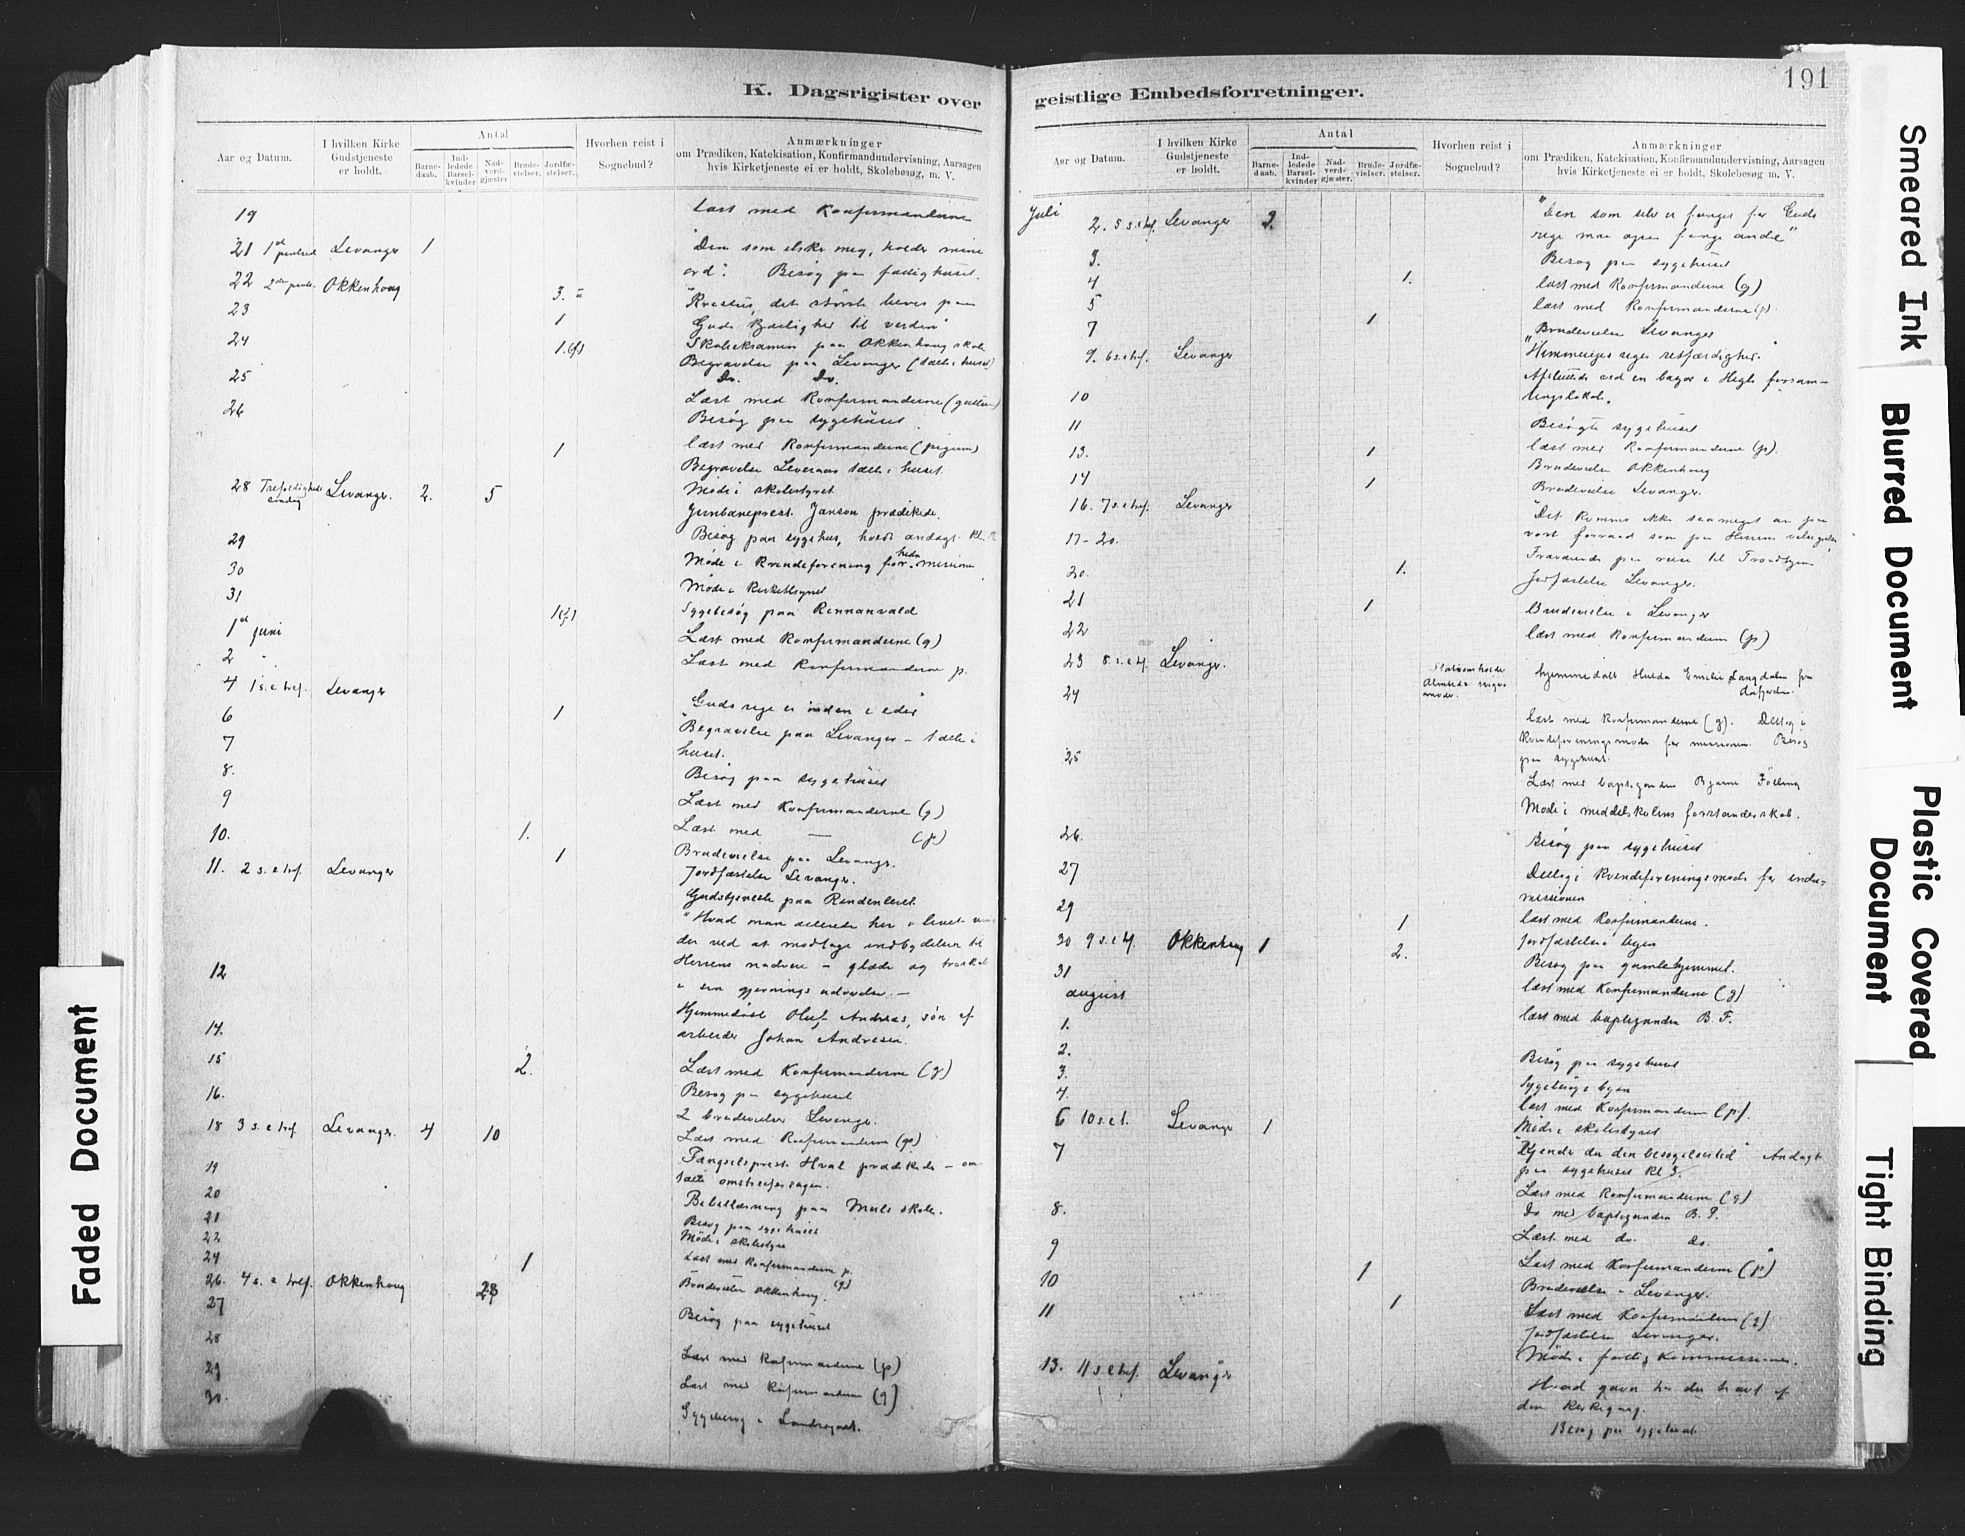 K. Dagsrigister over
Aar og Datum.
I hvilken Kirke Gudstjeneste er holdt.
Antal
Barnedaab.
Indledede Barselkvinder
Nadverdgjæster
Brudevielser.
Jordfæstelser.
Hvorhen reist i Sognebud?
Anmærkninger
om Prædiken, Katekisation, Konfirmandundervisning, Aarsagen
hvis Kirketjeneste ei er holdt, Skolebesøg, m. V.
19 Læst med Konfirmanderne
21 1st Levanger 1 "Den som elsker mig, holder mine
ord". Besøg paa fattighuset.
22 Okkenhoug 3.
23 1
24 1.
Skoleeksamen paa Okkenhoug skole
Begravelse paa Levanger
25 Do. Do.
Læst med Konfirmanderne
26 Besøg paa sygehuset
1 læst med Konfirmanderne (pigerne)
Begravelse
28 Trefoldigheds søndag Levanger. 2. 5 Møde i skolestyret
Jernbaneprest Janson prædikede.
29 Besøg paa sygehus, holdt andagt
30 Møde i Kvindeforening for hedn. missionen
31 Møde i
1(g) Sygebesøg paa Rennanvald
1st juni Læst med Konfirmanderne (g)
2 " Læst med Konfirmanderne p.
4 1 s. e tref. Levanger Guds rige er inden i eder
6 1 Begravelse paa Levanger - tale i
7 huset.
8. Besøg paa sygehuset
9 Læst med Konfirmanderne (g)
10. 1. Læst med — (p)
1 Brudevielse paa Levanger.
11. 2 s. e tref. Levanger Jordfæstelse Levanger.
Gudstjeneste paa
"Hvad man allerede her i livet
der ved at modtage indbydelsen til
12 Herrens nadvere - glæde og
i sin gjernings udøvelse. -
Hjemmedøbt Oluf Andreas, søn af
14. arbeider Johan Andresen.
15 2. Læst med Konfirmanderne (g)
16. Besøg p sygehuset
2 brudevielser Levanger.
18 3 s. e tref. Levanger. 4 10 Læst med Konfirmanderne (p)
19 Fængselsprest Hval prædikede - om-
20
21 paa Mule skole.
Besøg paa sygehuset
22 Møde i skolestyret
24 1 Læst med Konfirmanderne p.
(g)
26. 4 s. e tref. Okkenhoug Brudevielse Okkenhoug.
27 Besøg paa sygehuset
28
29 Læst med Konfirmanderne (p)
30. Læst med Konfirmanderne (g)
Sygebesøg i
geistlige Embedsforretninger.
191
Aar og Datum.
I hvilken Kirke Gudstjeneste er holdt.
Antal
Barnedaab.
Indledede Barselkvinder
Nadverdgjæster.
Brudevielser.
Jordfæstelser.
Hvorhen reist i Sognebud?
Anmærkninger
om Prædiken, Katekisation, Konfirmandundervisning, Aarsagen
hvis Kirketjeneste ei er holdt, Skolebesøg m. V.
Juli 2. 5 s. e tref. Levanger "Den som selv er fanget for Guds
rige maa ogsaa fange andre"
3. Besøg paa sygehuset
4 1. læst med Konfirmanderne (g)
5 læst med Konfirmanderne (p)
7 1 Brudevielse Levanger
9. 6 s. e tref. Levanger "Himmeriges riges retfærdighed."
Afsluttede ved en bazar i forsam-
10 lingslokale.
11 Besøgte sygehuset
læst med Konfirmanderne (p).
13. 1 Brudevielse Okkenhoug
14 1 Brudevielse Levanger.
16. 7 s. e tref. Levanger "Det kommer ikke saameget an paa
17-20. vort forraad som paa Herrens velsignelse
Fraværende paa reise til Trondhjem
20. 1. Jordfæstelse Levanger.
21 1 Brudevielse i Levanger
22 læst med Konfirmanderne (p)
23 8 s. e tref. Levanger. hjemmedøbt Hulda Emelie Langdalen
24 læst med Konfirmanderne (g). Deltog i
Kvindeforeningsmøde for missionen. Besøg
25 paa sygehuset.
Læst med baptiganden Bjarne
Møde i middelskolens forstanderskab.
26. Besøg paa sygehuset
27 Deltog i Kvindeforeningsmøde for indre-
missionen
29 1 læst med Konfirmanderne.
30 9 s. e tref. Okkenhoug 1 2. Jordfæstelse i byen
31 Besøg paa gamlehjemmet.
august læst med Konfirmanderne (g)
1. læst med baptiganden B. F.
2. Besøg paa sygehuset
3. Sygebesøg i byen
4. læst med Konfirmanderne (p).
6 10 s. e t. Levanger 1 Møde i skolestyret
7 "Kjender du din besøgelsestid" Andagt
paa sygehuset kl 3.
Læst med Konfirmanderne (g)
8. Do med baptiganden B. F.
9 Læst med do. do.
Læst med Konfirmanderne (p)
10 1 Brudevielse - Levanger.
11 1 Læst med Konfirmanterne (g)
Jordfæstelse Levanger.
13. 11 s e tref. Levanger Møde i
Hvad gavn har du havt af
din kirkegang.
Besøg paa sygehuset
Faded Document
Smeared Ink
Blurred Document
Plastic Covered Document
Tight Binding